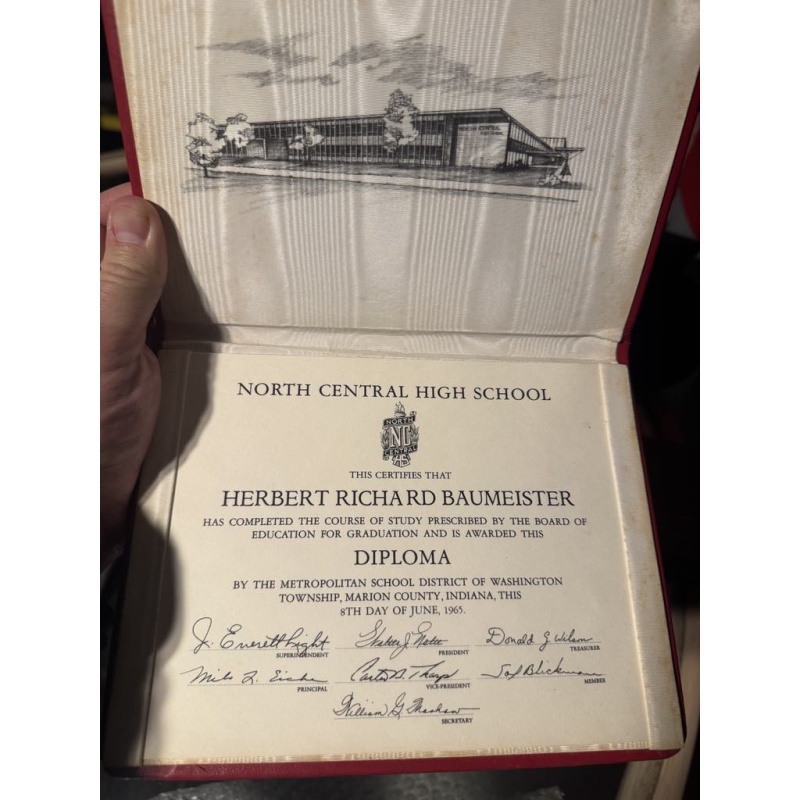 NORTH CENTRAL
NORTH CENTRAL HIGH SCHOOL
NORTH
NC
CENTRAL
HS
THIS CERTIFIES THAT
HERBERT RICHARD BAUMEISTER
HAS COMPLETED THE COURSE OF STUDY PRESCRIBED BY THE BOARD OF
EDUCATION FOR GRADUATION AND IS AWARDED THIS
DIPLOMA
BY THE METROPOLITAN SCHOOL DISTRICT OF WASHINGTON
TOWNSHIP, MARION COUNTY, INDIANA, THIS
8TH DAY OF JUNE, 1965.
J. Everett Light
SUPERINTENDENT
PRESIDENT
Donald J. Wilson
TREASURER
PRINCIPAL
Carter B. Tharp
VICE-PRESIDENT
MEMBER
William G.
SECRETARY